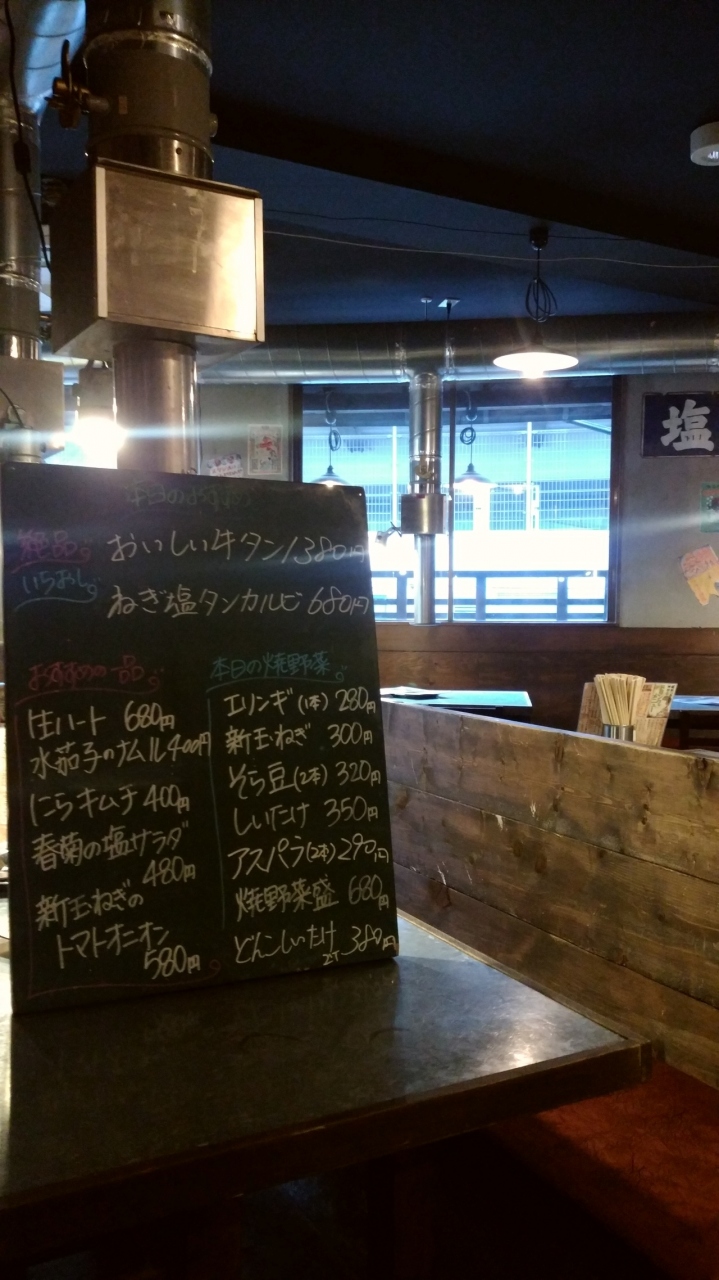 塩
本日のおすすめ
絶品 おいしい牛タン 1380円
いちおし ねぎ塩タンカルビ 680円
おすすめの一品
生ハート 680円
水茄子のナムル 400円
にらキムチ 400円
春菊の塩サラダ
480円
新玉ねぎの
トマトオニオン
580円
本日の焼野菜
エリンギ(1本) 280円
新玉ねぎ 300円
そら豆(2本) 320円
しいたけ 350円
アスパラ(2本) 290円
焼野菜盛 680円
どんこしいたけ 380円
2ケ